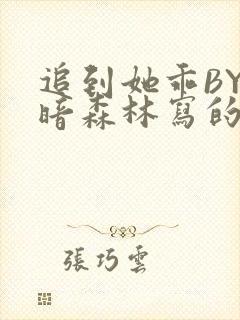 追到她乖BY
暗森林寫的
張巧雲